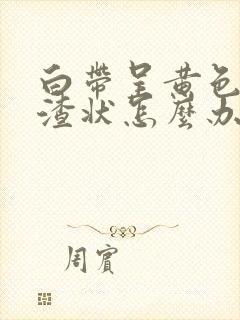 白带呈黄色
渣状怎么办
周宾